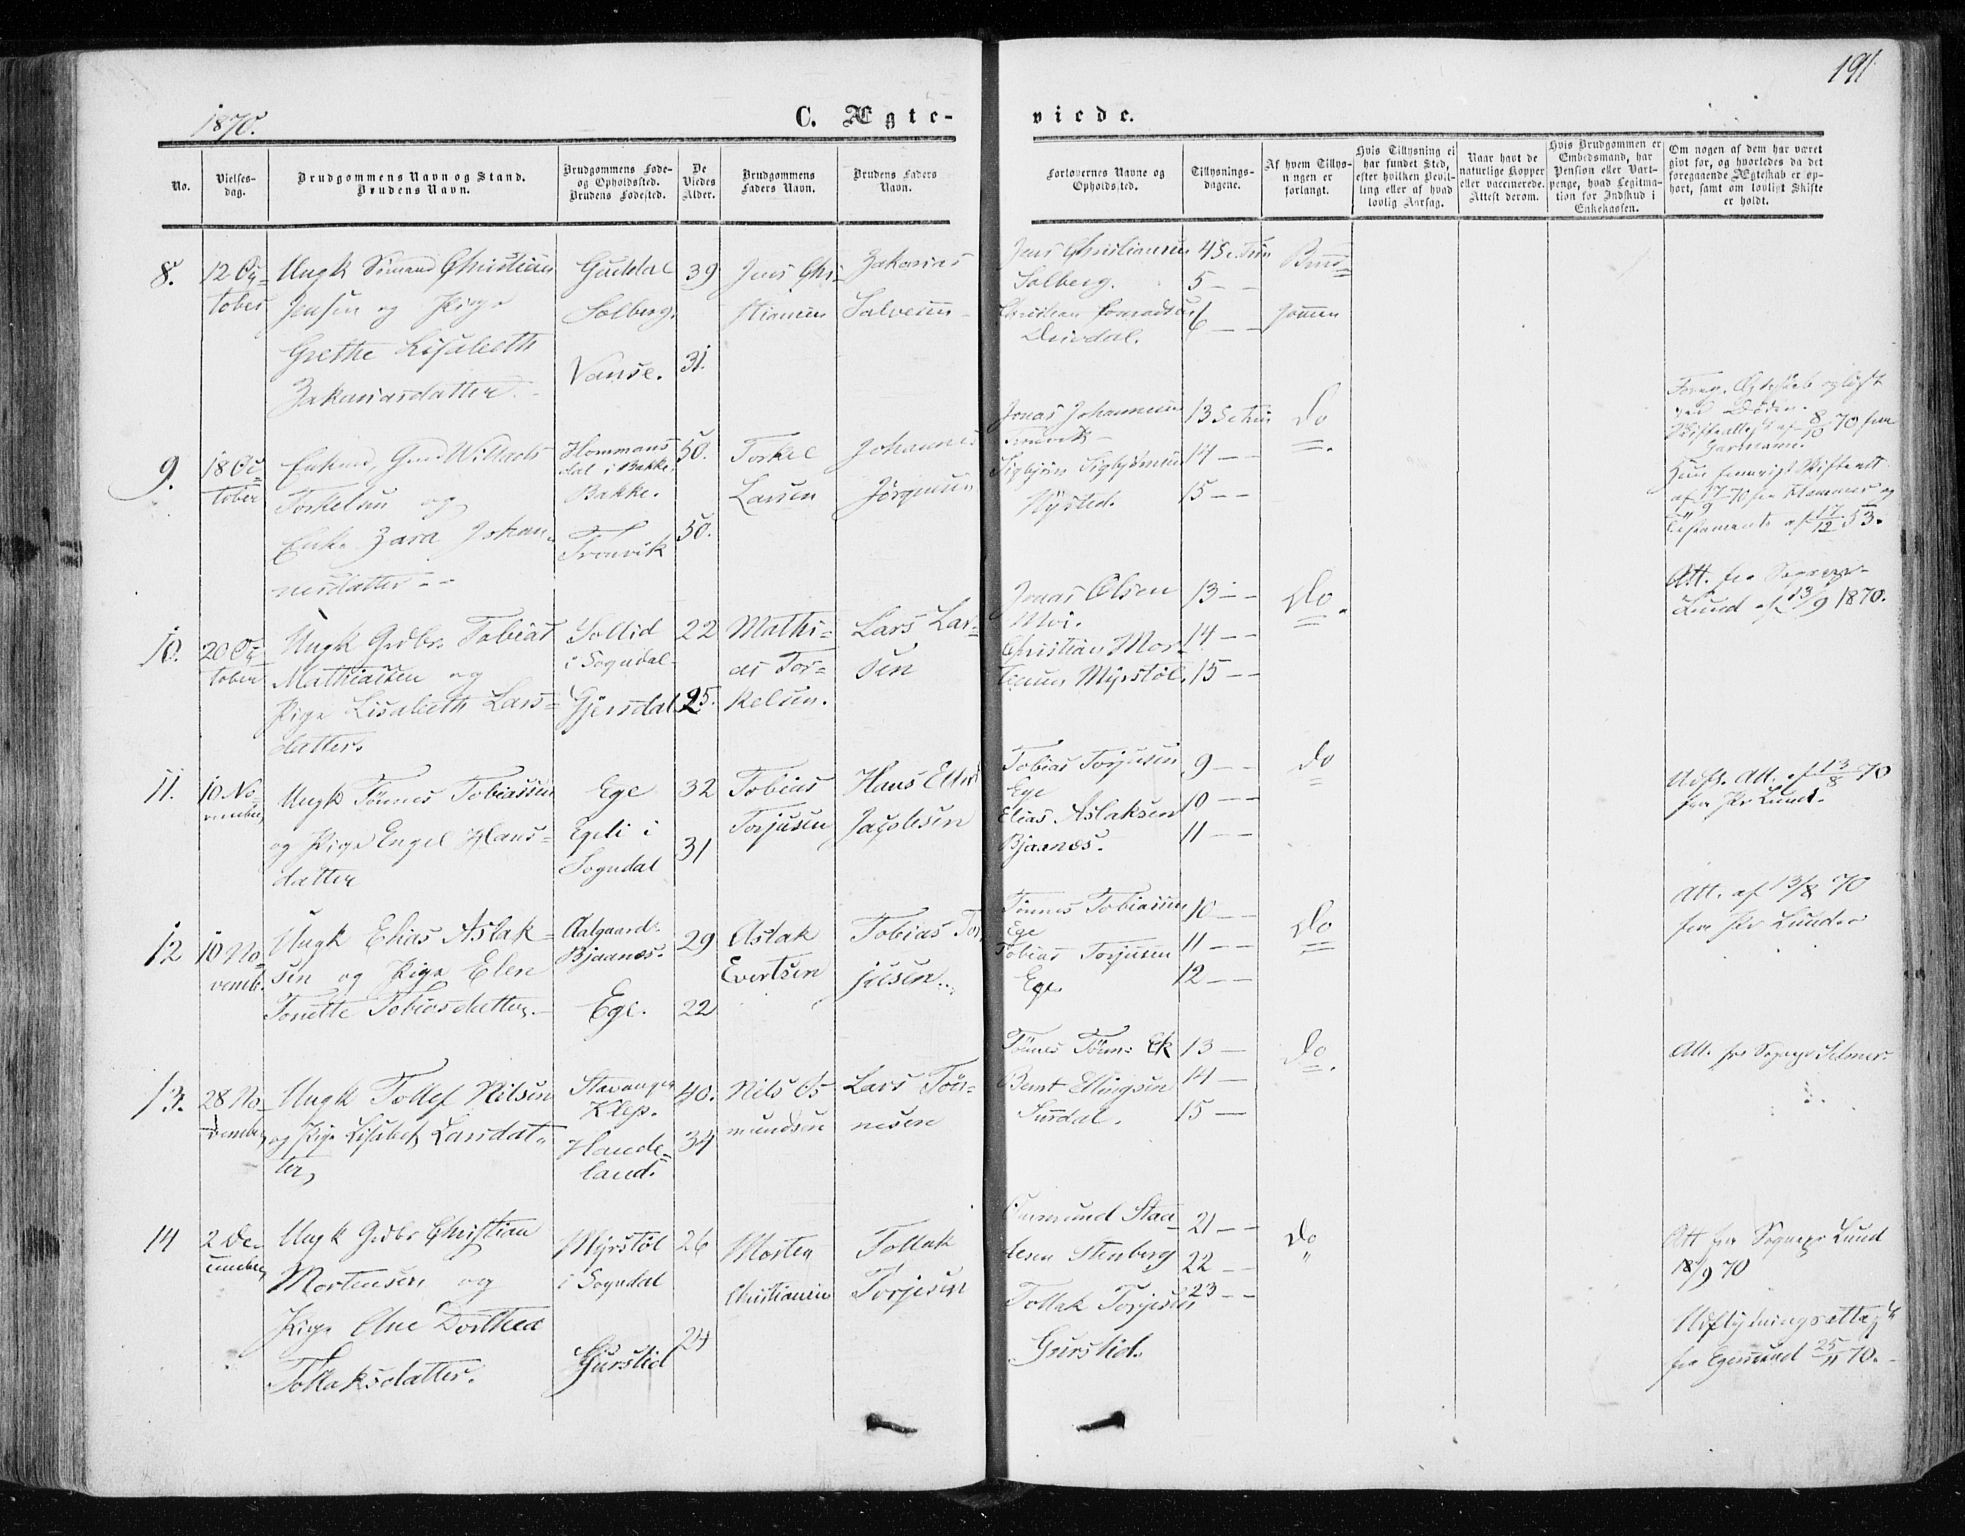 1870.
C. Ægte-
viede.
191
No.
Vielses-
dag.
Brudgommens Navn og Stand.
Brudens Navn.
Brudgommens Føde-
og Opholdssted.
Brudens Fødested.
De
Viedes
Alder.
Brudgommens
Faders Navn.
Brudens Faders
Navn.
Forlovernes Navne og
Opholdssted.
Tillysnings-
dagene.
Af hvem Tillys-
ningen er
forlangt.
Hvis Tillysning ei
har fundet Sted,
efter hvilken Bevil-
ling eller af hvad
lovlig Aarsag.
Naar havt de
naturlige Kopper
eller vaccinerede.
Attest derom.
Hvis Brudgommen er
Embedsmand, har
Pension eller Vart-
penge, hvad Legitima-
tion for Indskud i
Enkekassen.
Om nogen af dem har været
givt før, og hvorledes da det
foregaaende Ægteskab er op-
hørt, samt om lovligt Skifte
er holdt.
8.
12 Oc-
tober
Ungk Christian
Jensen og Pige
Grethe Lisabeth
Zakariasdatter.
Guddal
Solberg.
Vanse.
39
31.
Jens Chri-
stiansen
Zakarias
Salvesen
Jens Christiansen
Solberg.
Christian
4 S. e. Trin
5 - -
6 - -
Brud-
gommen
9.
18 Oc-
tober
Enkem. Willads
Torkelsen og
Enke Zara Johan-
nesdatter - -
Hommens
dal i Bakke
Bakke.
Tronvik
50.
50.
Torkel
Larsen
Johannes
Jørgensen
Jonas Johannessen
Tronvik -
Sigbjørn Sigbjørnsen
Nysted.
13 S e Trin
14 - -
15 - -
Do
Foreg. Ægteskab opløst
ved Døden.
Skifteattest af 8/10 70 fra
Hun Skifteatt.
af 17/9 70 fra og
Testamente af 17/12 53.
10.
20 Oc-
tober
Ungk Grdbr. Tobias
Mathiassen og
Pige Lisabeth Lars-
datter.
Sollid
i Sogndal
Gjersdal
22
25.
Mathi-
as Tor-
kelsen.
Lars Lar-
sen
Jonas Olsen
Moi.
Christian Mor-
tensen Myrstøl.
13 - -
14 - -
15 - -
Do.
Att. fra Sognepr.
Lund af 13/9 1870.
11.
10 No-
vember
Ungk Tønnes Tobiassen
og Pige Engel Hans-
datter
Ege
Egeli i
Sogndal
32
31
Tobias
Torjusen
Hans
Jacobsen
Tobias Torjusen
Ege
Elias Aslaksen
Bjaanes.
9 - -
10 - -
11 - -
Do
Udfl. Att. af 13/8 70
fra Pr Lund.
12
10 No-
vemb.
Ungk Elias Aslak-
sen og Pige Elen
Tonette Tobiasdatter. -
Aalgaard
Bjaanes.
Ege.
29
22
Aslak
Evertsen
Tobias Tor-
jusen.
Tønnes Tobiassen
Ege
Tobias Torjusen
Ege.
10 - -
11 - -
12 - -
Do
Att. af 13/8 70
fra Pr Lund
13.
28 No-
vember
Ungk Tollef Nilsen
og Pige Lisabet Larsdat-
ter,
Stavanger
Klep.
Haade-
land.
40.
34
Nils Os-
mundsen
Lars Tøn-
nesen
Tønnes Tønns Ek
Bernt Ellingsen
Surdal.
13 -
14 -
15 -
Do.
Att. fra Sognepr Selmer
14
2 De-
cember
Ungk Grdbr Christian
Mortensen og
Pige Ane Dorthea
Tollaksdatter.
Myrstøl
i Sogndal
Gurstid
26
24
Morten
Christiansen
Tollak
Torjesen
Staa-
lesen Stenberg
Tollak Torjesen
Gurstid.
21 - -
22 - -
23 - -
Do
"
Att fra Sognepr Lund
18/9 70
Udflytningsattest
fra Egersund 25/11 70.